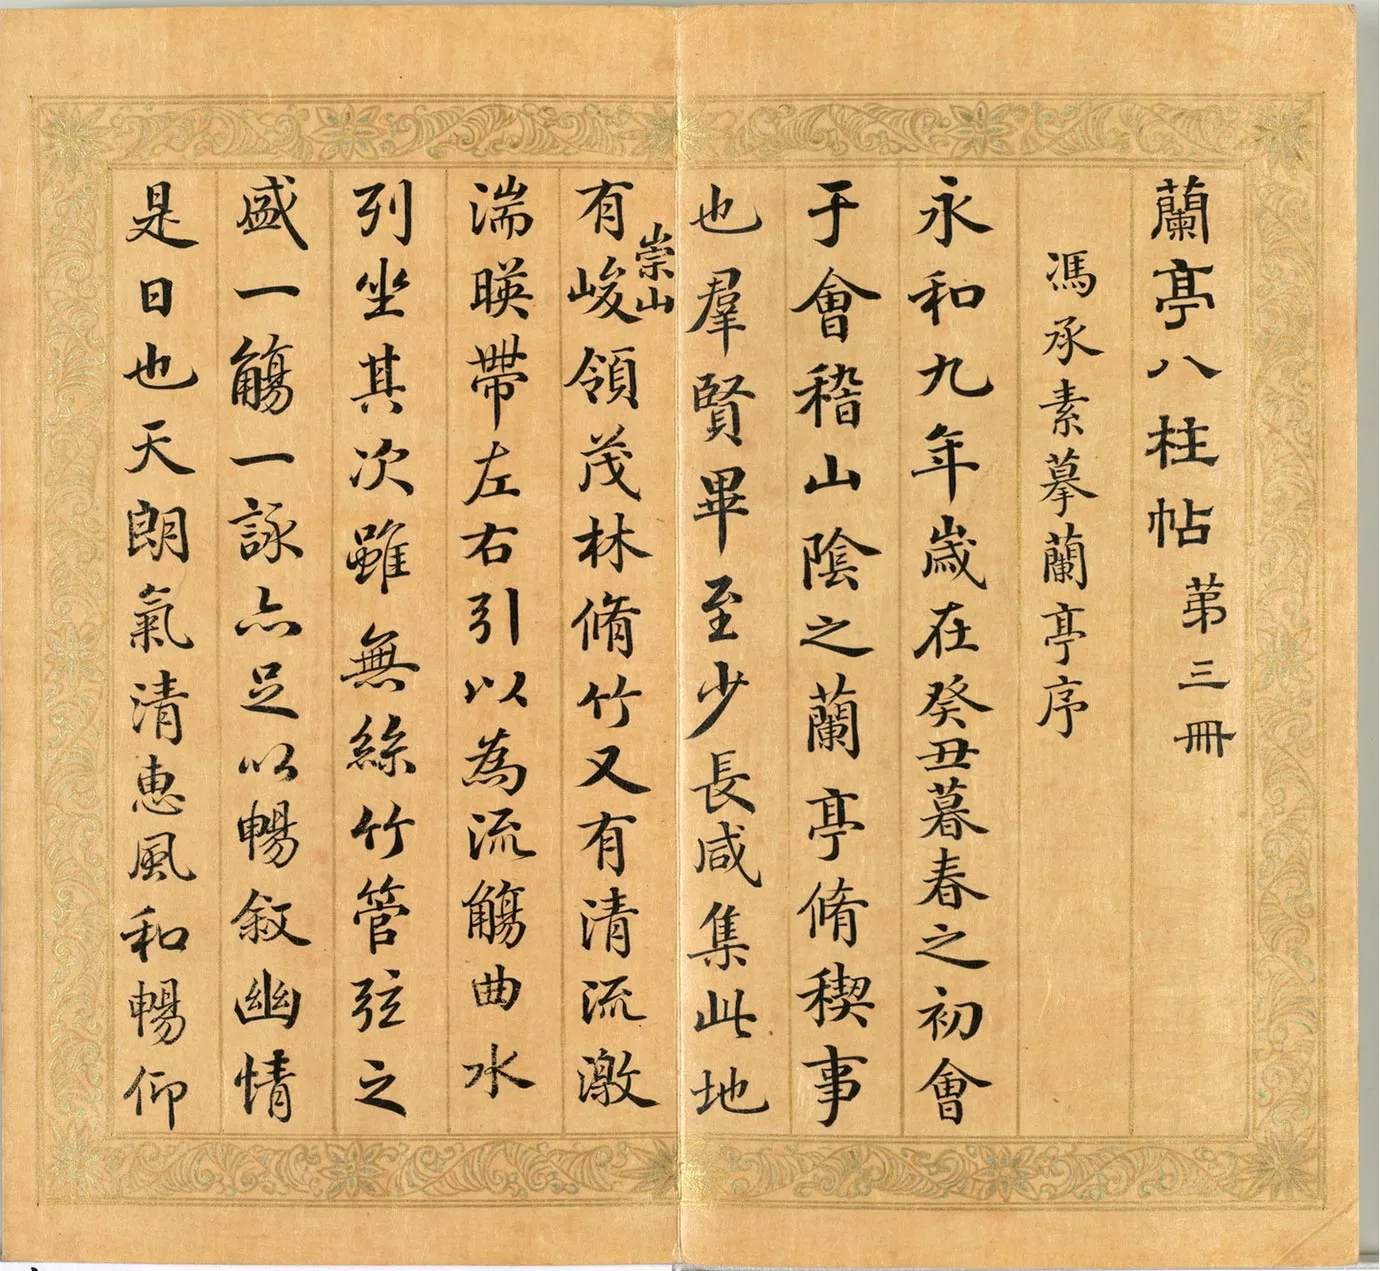 蘭亭八柱帖第三冊
馮承素摹蘭亭序
永和九年歲在癸丑暮春之初會
于會稽山陰之蘭亭脩稧事
也羣賢畢至少長咸集此地
有崇山峻領茂林脩竹又有清流激
湍暎帶左右引以為流觴曲水
列坐其次雖無絲竹管弦之
盛一觴一詠亦足以暢敘幽情
是日也天朗氣清惠風和暢仰